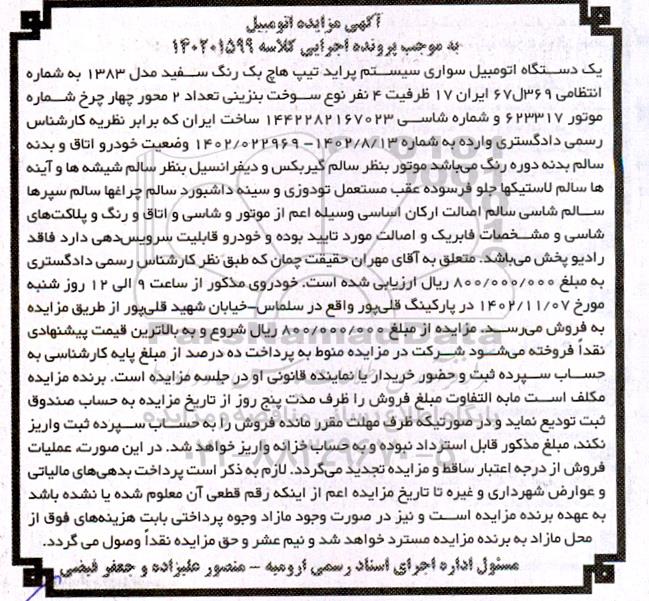 آگهی مزایده اتومبیل
به موجب پرونده اجرایی کلاسه ۱۴۰۲۰۱۵۹۹ :
یک دستگاه اتومبیل سواری سیستم پراید تیپ هاچ بک رنگ سفید مدل ۱۳۸۳ به شماره
انتظامی ۳۶۹ل۶۷ ایران ۱۷ ظرفیت ۴ نفر نوع سوخت بنزینی تعداد ۲ محور چهار چرخ شماره
موتور ۶۲۳۳۱۷ و شماره شاسی ۱۴۴۲۲۸۲۱۶۷۰۲۳ ساخت ایران که برابر نظریه کارشناس
رسمی دادگستری وارده به شماره ۱۴۰۲/۸/۱۳- ۱۴۰۲/۰۲۲۹۶۹ وضعیت خودرو اتاق و بدنه
سالم بدنه دوره رنگ می‌باشد موتور بنظر سالم گیربکس و دیفرانسیل بنظر سالم شیشه ها و آینه
ها سالم لاستیکها جلو فرسوده عقب مستعمل تودوزی و سینه داشبورد سالم چراغها سالم سپرها
سالم شاسی سالم اصالت ارکان اساسی وسیله اعم از موتور و شاسی و اتاق و رنگ و پلاکت‌های
شاسی و مشخصات فابریک و اصالت مورد تایید بوده و خودرو قابلیت سرویس‌دهی دارد فاقد
رادیو پخش می‌باشد. متعلق به آقای مهران حقیقت چمان که طبق نظر کارشناس رسمی دادگستری
به مبلغ ۸۰۰/۰۰۰/۰۰۰ ریال ارزیابی شده است. خودروی مذکور از ساعت ۹ الی ۱۲ روز شنبه
مورخ ۱۴۰۲/۱۱/۰۷ در پارکینگ قلی‌پور واقع در سلماس-خیابان شهید قلی‌پور از طریق مزایده
به فروش می‌رسد. مزایده از مبلغ ۸۰۰/۰۰۰/۰۰۰ ریال شروع و به بالاترین قیمت پیشنهادی
نقداً فروخته می‌شود شرکت در مزایده منوط به پرداخت ده درصد از مبلغ پایه کارشناسی به
حساب سپرده ثبت و حضور خریدار یا نماینده قانونی او در جلسه مزایده است. برنده مزایده
مکلف است مابه التفاوت مبلغ فروش را ظرف مدت پنج روز از تاریخ مزایده به حساب صندوق
ثبت تودیع نماید و در صورتیکه ظرف مهلت مقرر مانده فروش را به حساب سپرده ثبت واریز
نکند، مبلغ مذکور قابل استرداد نبوده و به حساب خزانه واریز خواهد شد. در این صورت، عملیات
فروش از درجه اعتبار ساقط و مزایده تجدید می‌گردد. لازم به ذکر است پرداخت بدهی‌های مالیاتی
و عوارض شهرداری و غیره تا تاریخ مزایده اعم از اینکه رقم قطعی آن معلوم شده یا نشده باشد
به عهده برنده مزایده است و نیز در صورت وجود مازاد وجوه پرداختی بابت هزینه‌های فوق از
محل مازاد به برنده مزایده مسترد خواهد شد و نیم عشر و حق مزایده نقداً وصول می گردد.
مسئول اداره اجرای اسناد رسمی ارومیه - منصور علیزاده و جعفر فیضی
ParsNamadData
پایگاه اطلاع رسانی مناقصه و مزایده
۰۲۱-۸۸۳۴۹۶۷۰-۵